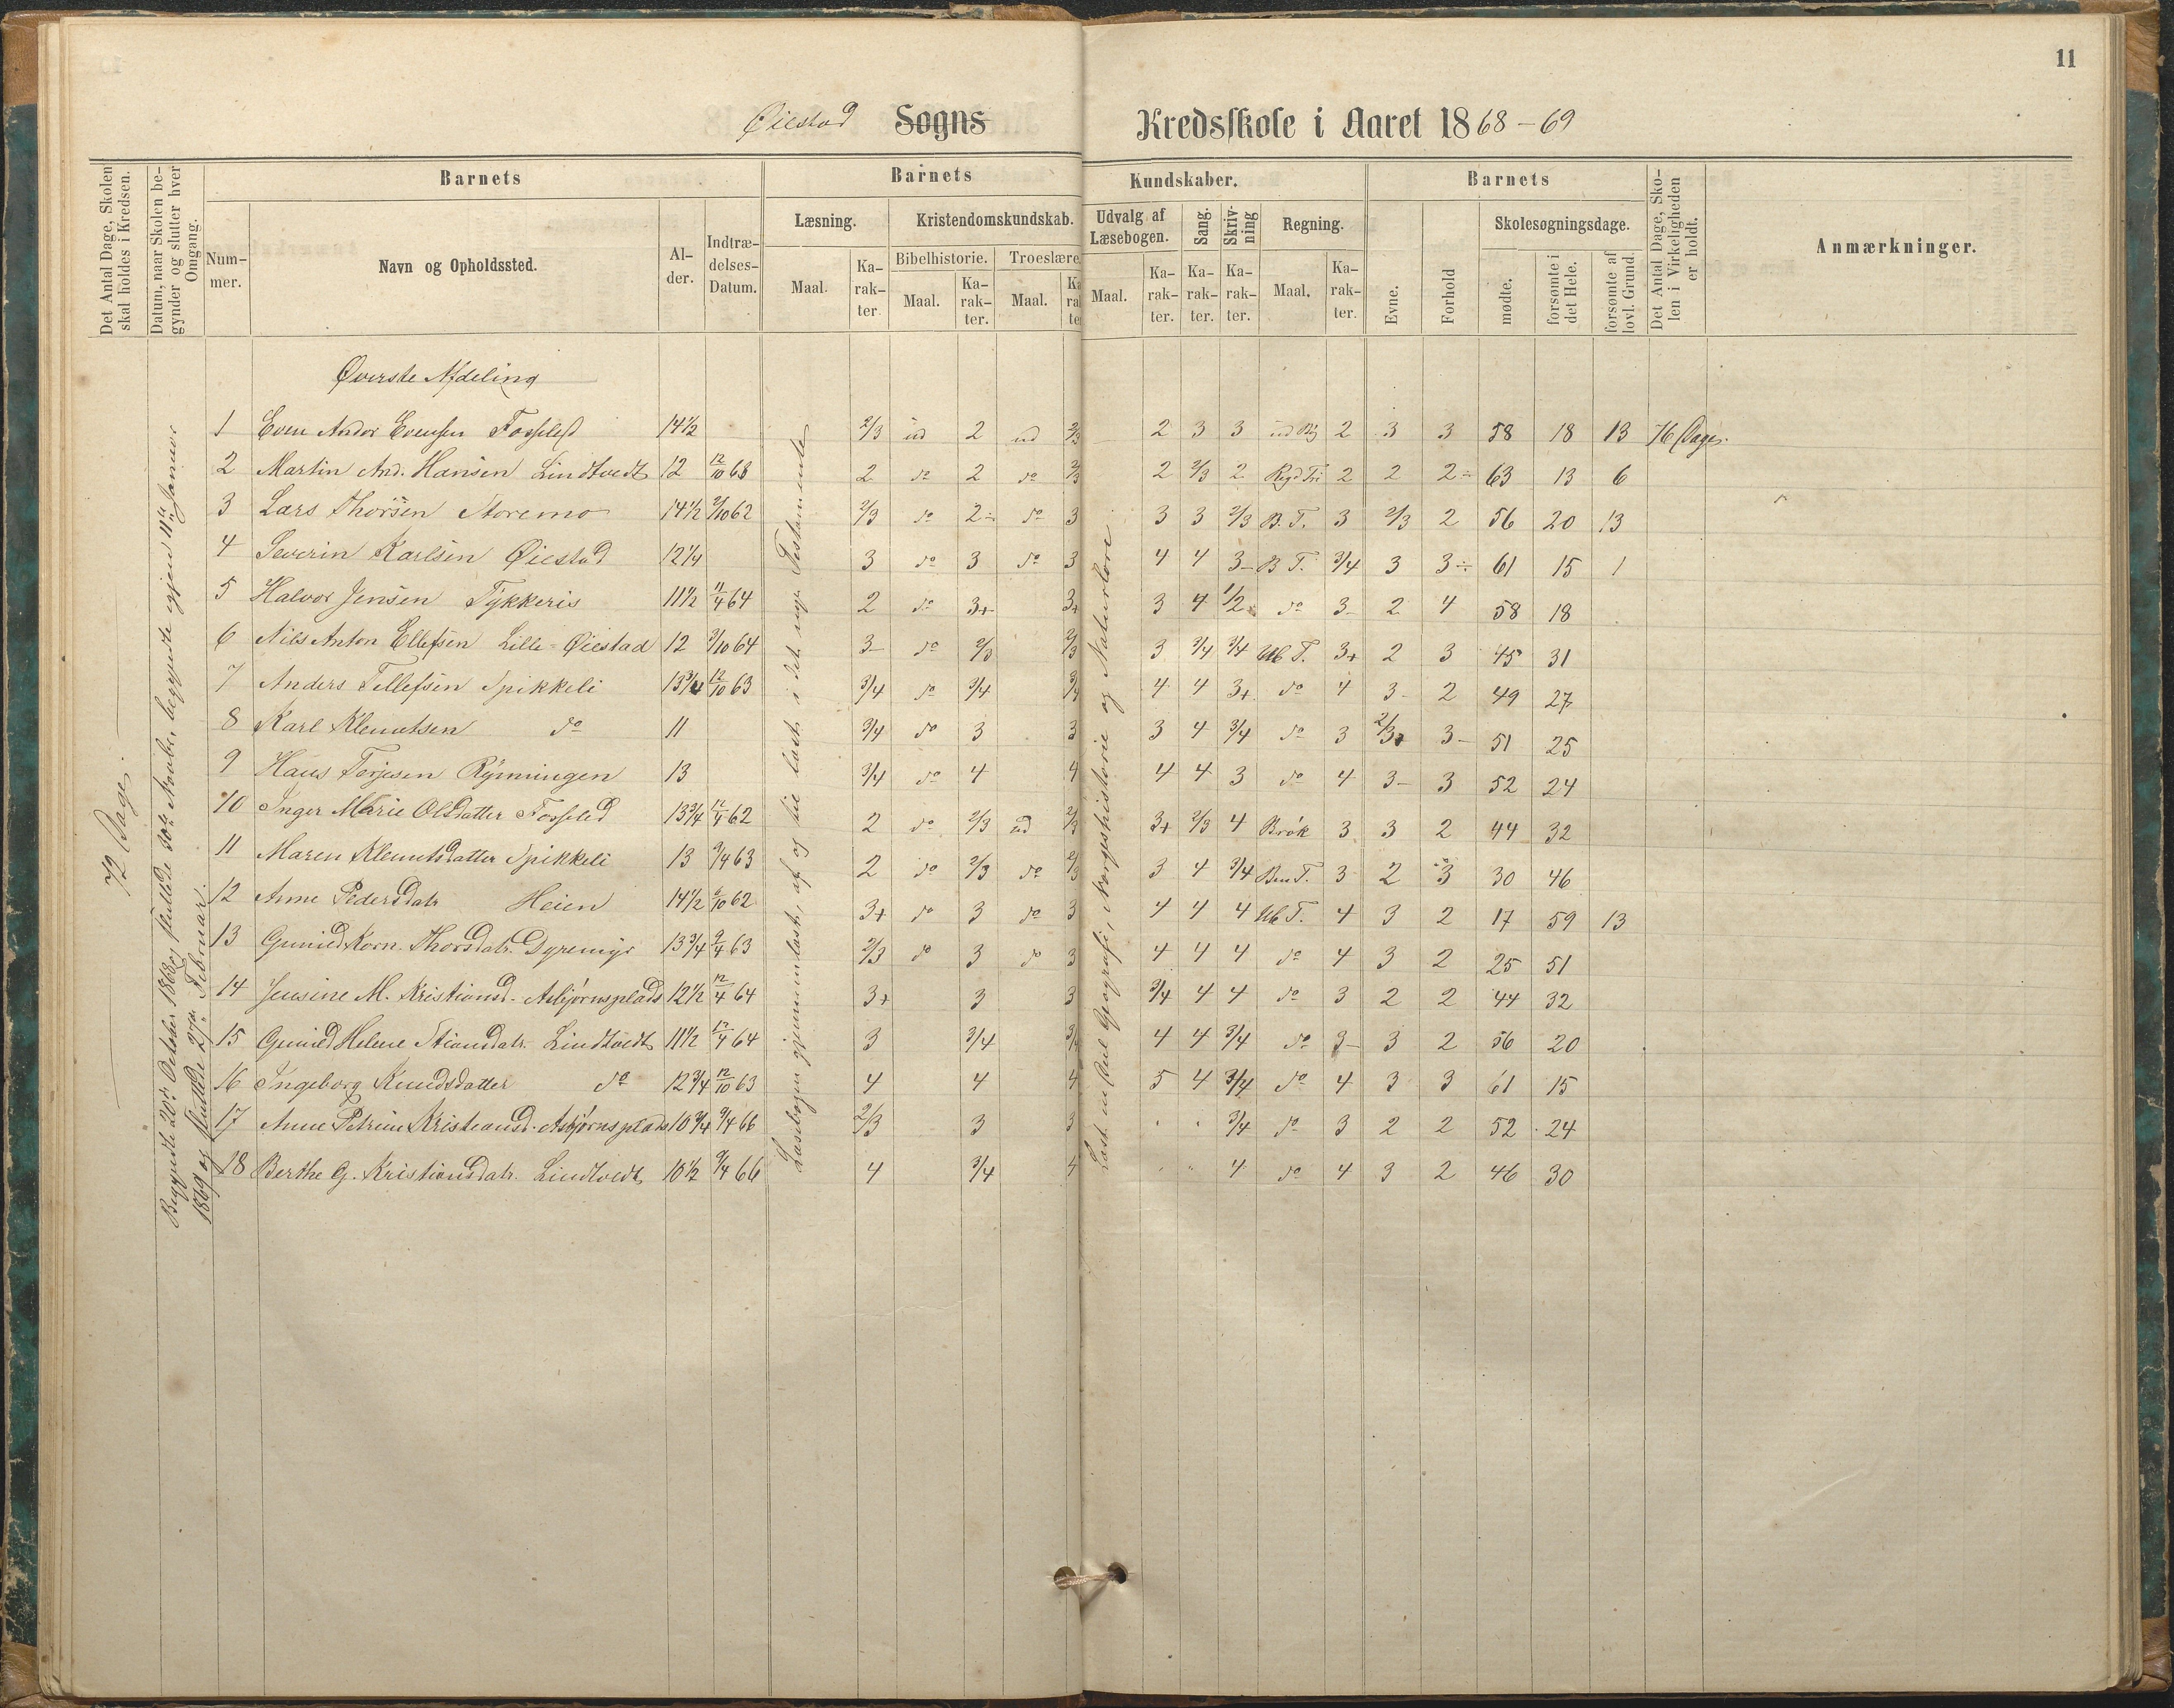 11
Øiestad Sogns Kredsskole i Aaret 1868-69
Det Antal Dage, Skolen skal holdes i Kredsen.
Datum, naar Skolen begynder og slutter hver Omgang.
Barnets
Nummer.
Navn og Opholdssted.
Alder.
Indtrædelses-Datum.
Barnets Kundskaber.
Læsning.
Maal.
Karakter.
Kristendomskundskab.
Bibelhistorie.
Maal.
Karakter.
Troeslære.
Maal.
Karakter.
Udvalg af Læsebogen.
Maal.
Karakter.
Sang.
Karakter.
Skrivning
Karakter.
Regning.
Maal.
Karakter.
Barnets
Evne.
Forhold
Skolesøgningsdage.
mødte.
forsømte i det Hele.
forsømte af lovl. Grund.
Det Antal Dage, Skolen i Virkeligheden er holdt.
Anmærkninger.
72 Dage.
Begyndte 20de Oktober 1868 og sluttede 30te Novbr., begyndte igjen 11te Januar
1869 og sluttede 27de Februar.
Læsebogen gjennemlæst, af og til læst i det nye Testamente
Læst en Deel Geografi, Norgeshistorie og Naturlære
Øverste Afdeling
1 Even Andor Evensen Fosselid 14 1/2 2/3 ud 2 ud 2/3 2 3 3 2 3 3 58 18 13 76 Dage.
2 Martin And. Hansen Lindtvedt 12 12/10 68 2 do 2 do 2/3 2 2/3 2 Regd Tri 2 2 2÷ 63 13 6
3 Lars Thorsen Storemo 14 1/2 2/10 62 2/3 do 2÷ do 3 3 3 2/3 B. T. 3 2/3 2 56 20 13
4 Severin Karlsen Øiestad 12 1/4 3 do 3 do 3 4 4 3- B T. 3/4 3 3÷ 61 15 1
5 Halvor Jensen Tykkeris 11 1/2 11/4 64 2 do 3+ 3+ 3 4 1/2 do 3- 2 4 58 18
6 Nils Anton Ellefsen Lille-Øiestad 12 3/10 64 3- do 2/3 2/3 3 3/4 3/4 Ub T. 3+ 2 3 45 31
7 Anders Tellefsen Spikkeli 13 3/4 12/10 63 3/4 do 3/4 3/4 4 4 3+ do 4 3- 2 49 27
8 Karl Klemetsen do 11 3/4 do 3 3 3 4 3/4 do 3 2/3 3- 51 25
9 Hans Terjesen Rýnningen 13 3/4 do 4 4 4 4 3 do 4 3- 3 52 24
10 Inger Marie Olsdatter Fosselid 13 3/4 12/4 62 2 do 2/3 ud 2/3 3+ 2/3 4 Brök 3 3 2 44 32
11 Maren Klemetsdatter Spikkeli 13 9/4 63 2 do 2/3 do 2/3 3 4 3/4 Ben T. 3 2 3 30 46
12 Anne Pedersdatr Heien 14 1/2 6/10 62 3+ do 3 do 3 4 4 4 Ub T. 4 3 2 17 59 13
13 Gunild Korn. Thorsdatr. Dyremyr 13 3/4 9/4 63 2/3 do 3 do 3 4 4 4 do 4 3 2 25 51
14 Jensine M. Kristiansd. Asbjørnsplads 12 1/2 12/4 64 3+ 3 3 3/4 4 4 do 3 2 2 44 32
15 Gunild Helene Stiansdatr. Lindtvedt 11 1/2 12/4 64 3 3/4 3/4 4 4 3/4 do 3- 3 2 56 20
16 Ingeborg Knudsdatter do 12 3/4 12/10 63 4 4 4 5 4 3/4 do 4 3 3 61 15
17 Anne Petrine Kristiansd. Asbjørnsplads 10 3/4 9/4 66 2/3 3 3 3/4 do 3 2 2 52 24
18 Berthe G. Kristiansdatr. Lindtvedt 10 1/2 9/4 66 4 3/4 4 4 do 4 3 2 46 30